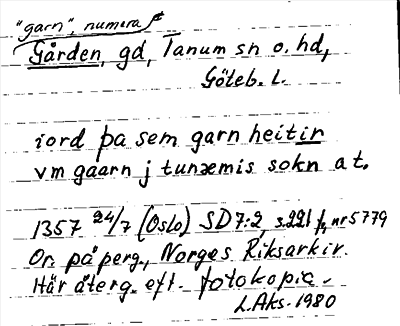 "garn", numera
Gården, gd, Tanum sn o. hd,
Göteb. l.
iord þa sem garn heitir
vm gaarn j tunæmis sokn a t.
1357 24/7 (Oslo) SD 7:2, s. 221 f, nr 5779
Or. på perg., Norges Riksarkiv.
Här återg. eft. fotokopia.
L. Aks. 1980